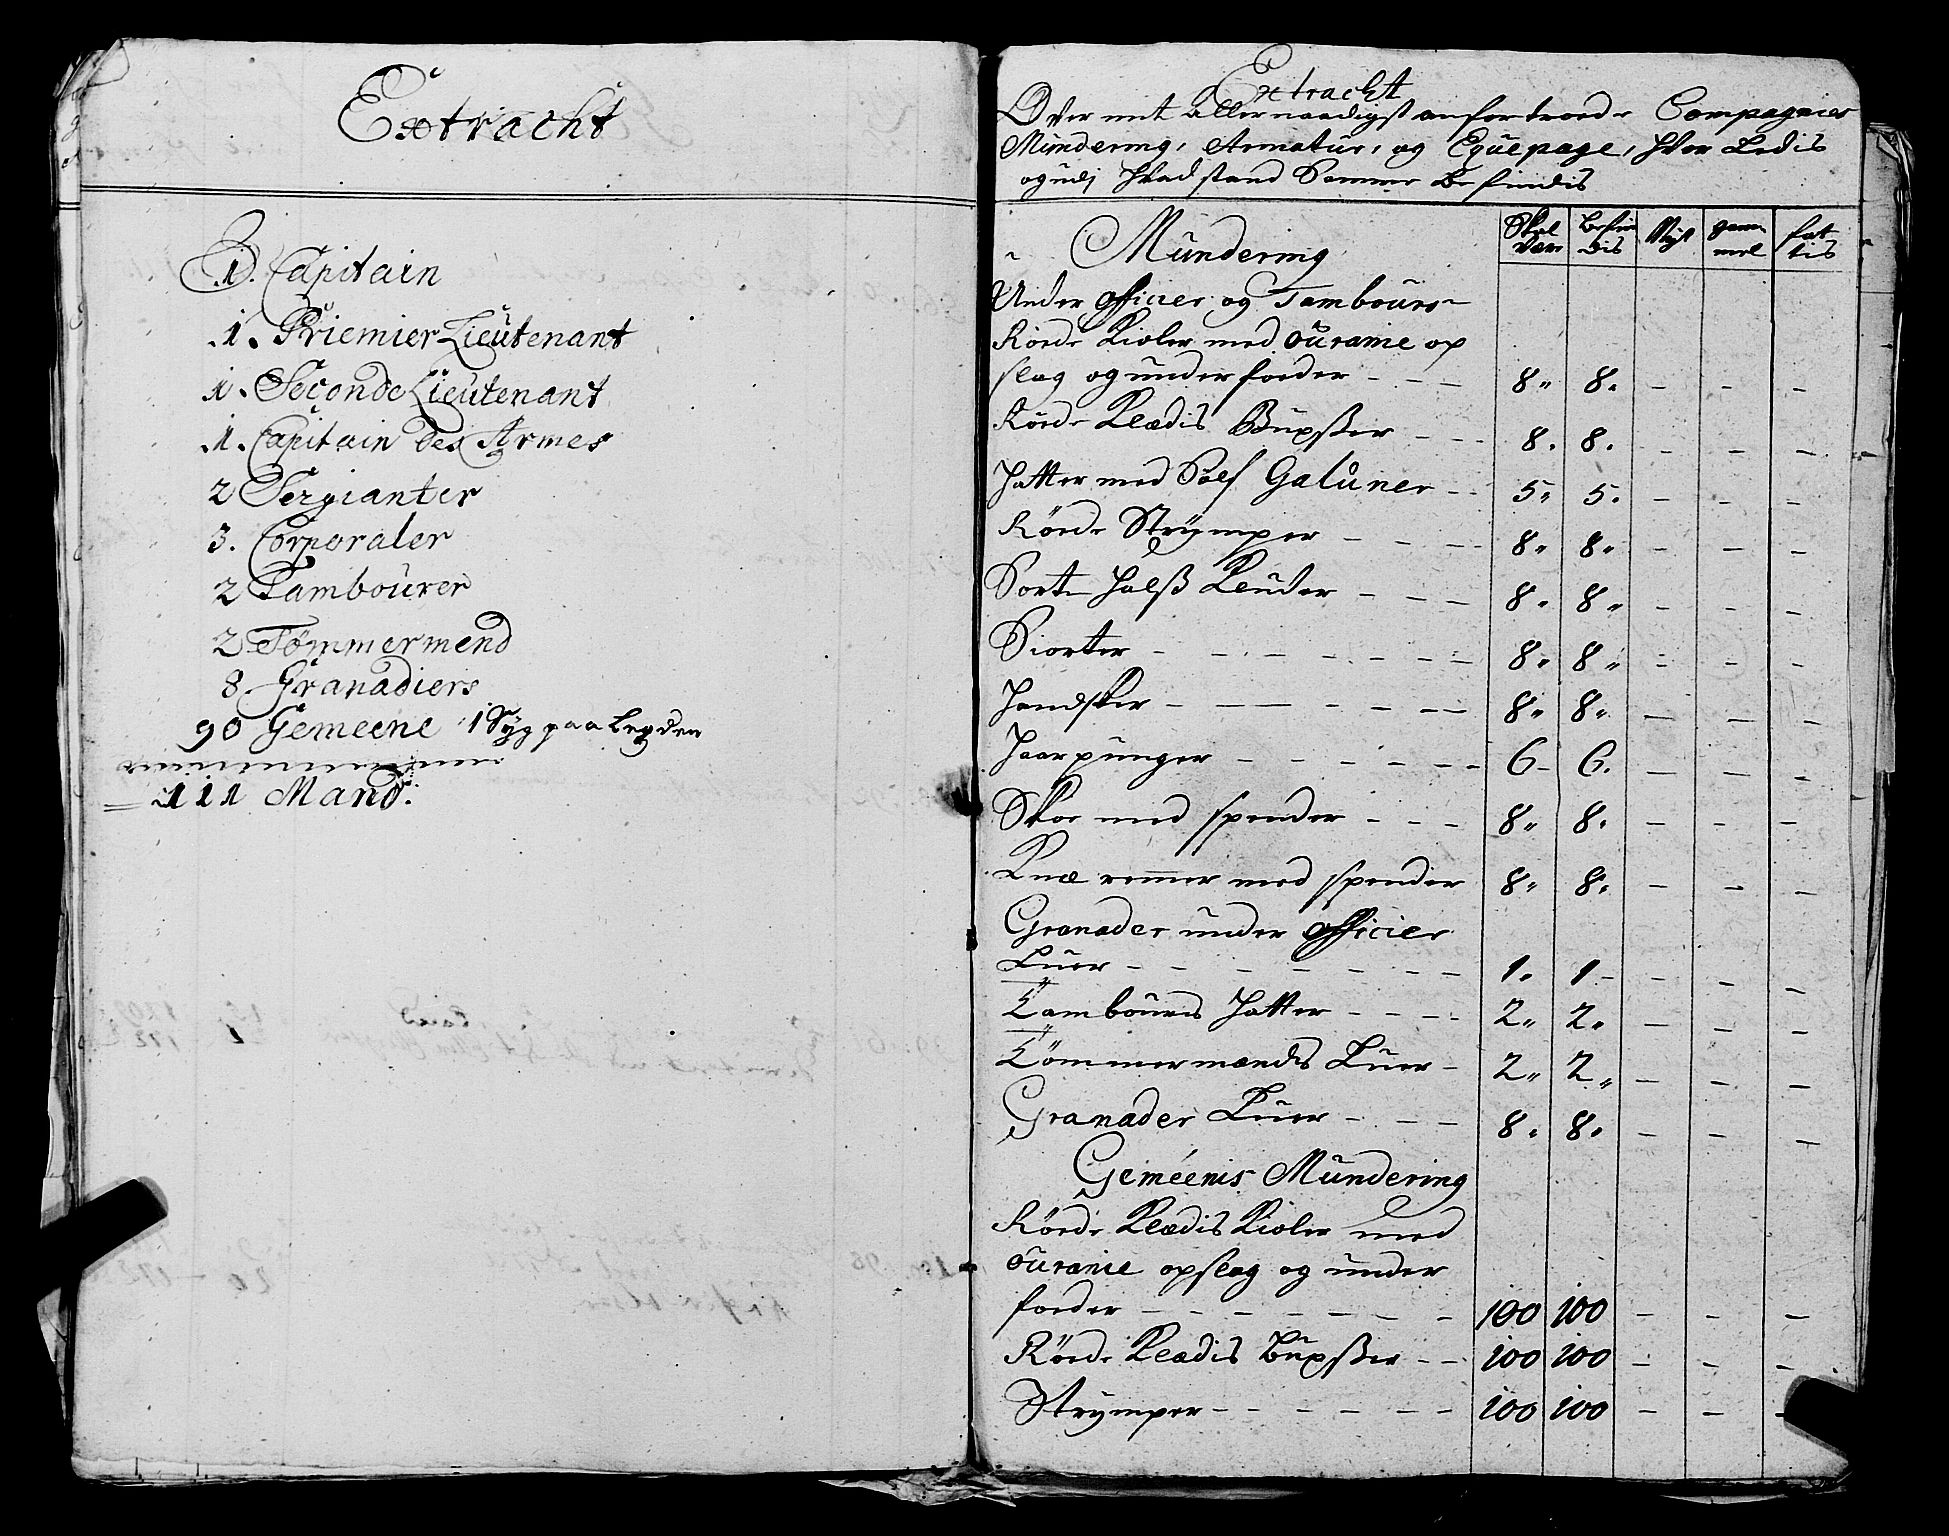 Extracht
1. Capitain
1. Priemier Lieutenant
1. Seconde Lieutenant
1. Capitain des Armes
2 Sergianter
3. Corporaler
2 Tambourer
2 Tømmermend
8 Granadiers
90 Gemeene 1 Syg paa Legden
111 Mand.
Extracht
Over mit allernaadigst anfortroede Compagnies
Mundering, Armatur, og Equepage, hvor Ledis
og udj hvad stand Samme befindis
Mundering Skal være Befindis Nyt gammel fattis
Under officier og Tambours
Røede Kioler med Couranie op
slag og underfoeder - - - 8 8. - - -
Røede Klædis Buxßer - - - 8. 8. - - -
Hatter med Sølf Galuner - - 5 5. - - -
Røede Strymper - - - - 8 8 - - -
Sorte Halß Kluder - - - 8 8 - - -
Skiorter - - - - - - - 8 8 - - -
Handsker - - - - - - 8 8 - - -
Haarpunger - - - - - 6 6. - - -
Skoe med spender - - - 8 8. - - -
Knæ remmer med spender 8 8. - - -
Granader under officier
Luer - - - - - - - 1. 1 - - -
Tambours Hatter - - - - 2 2 - - -
Tømmermænds Luer - 2 2 - - -
Granader Luer - - - 8. 8. - - -
Geméenis Mundering
Røede Klædis Kioler med
Couranie opslag og under
foeder - - - - - - 100 100 - - -
Røede Klædis Buxßer - - 100 100 - - -
Strymper - - - - - - 100 100 - - -